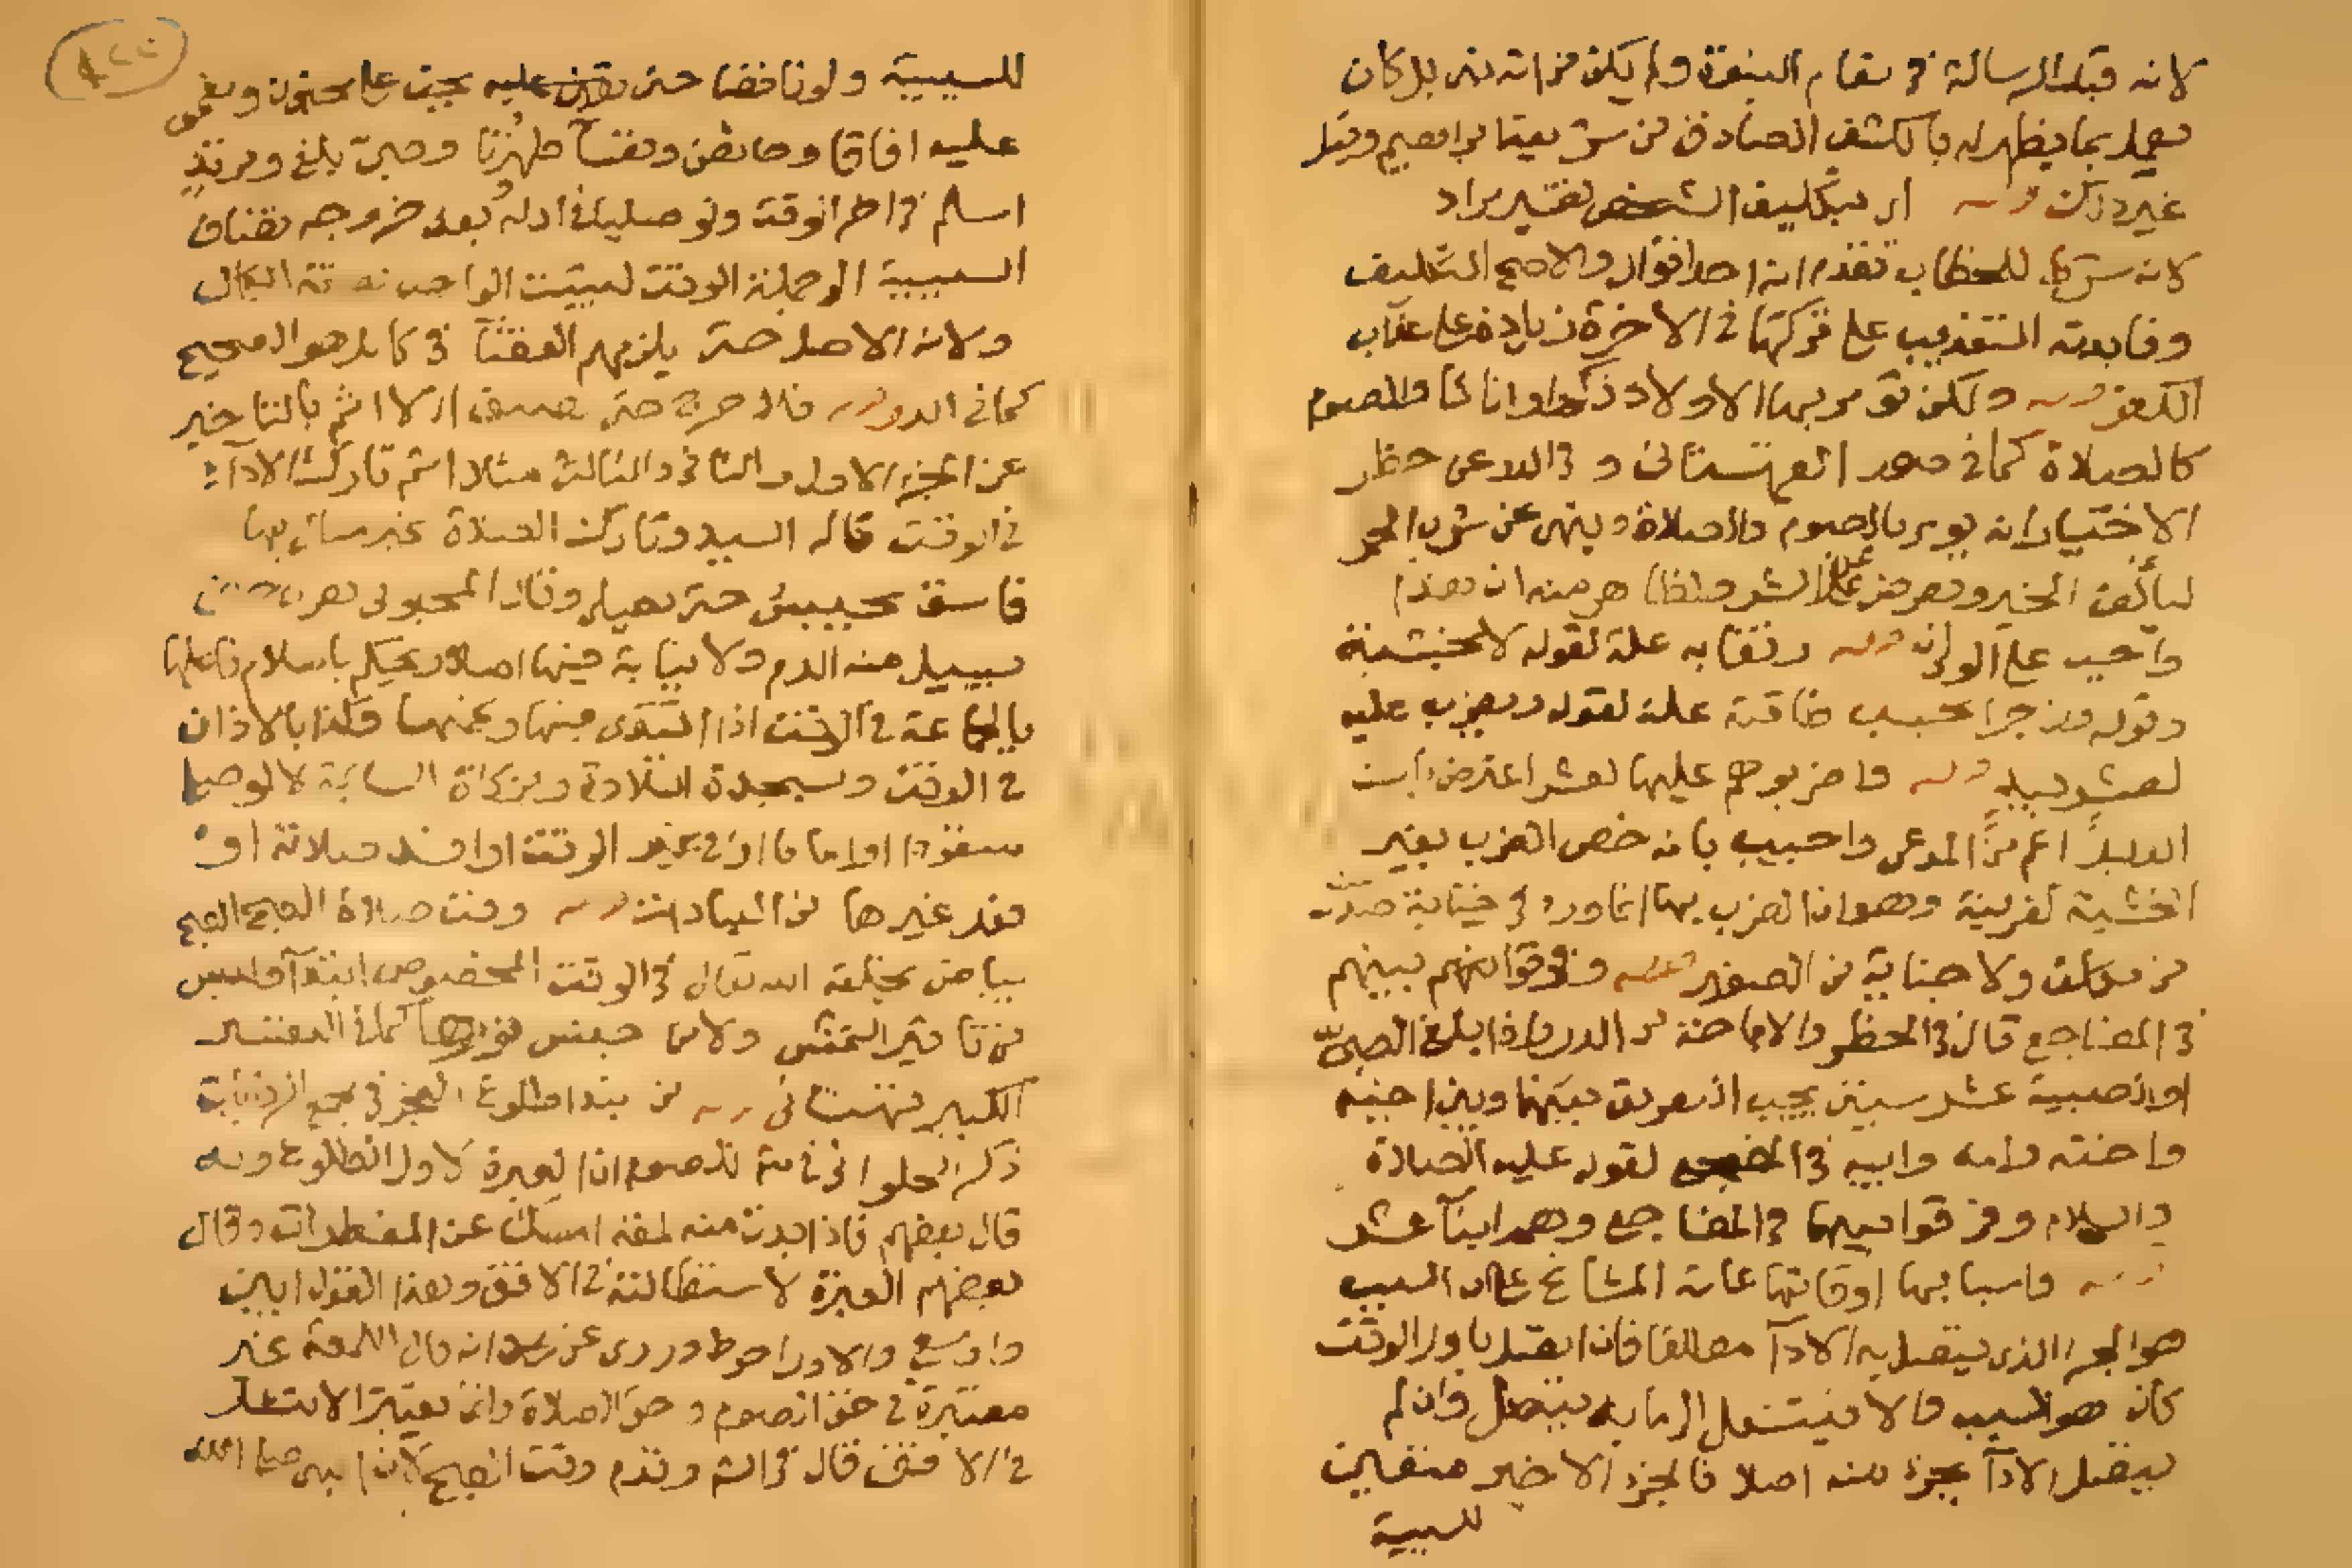 لانه قبل الرسالة في مقام النبوة ولم يكن من امة نبي بل كان
يعمل بما يظهر له بالكشف الصادق من شريعة ابراهيم وقيل
غير ذلك قوله اي بتكليف الشخص تفسير مراد
لانه شرط للخطاب تقدم انه احد اقوال والاصح التكليف
وفايدته التعذيب على تركها في الاخرة زيادة على عقاب
الكفر قوله ولكن تؤمر بها الاولاد ذكورا واناثا والصوم
كالصلاة كما في صوم القهستاني و في الدر عن حظر
الاختيار انه يومر بالصوم والصلاة وينهى عن شرب الخمر
ليألف الخير ويعرض عن الشر وظاهر منه ان هذا
واجب على الولي قوله رفقا به علة لقوله لا بخشبة
وقوله وزجرا بحسب طاقته علة لقوله ويضرب عليه
لعشر بيد قوله واضربوهم عليها لعشر اعترض بان
الدليل اعم من المدعى واجيب بانه خص الضرب بغير
الخشبة لقرينة وهو ان الضرب بها انما ورد في جناية صدرت
من مكلف ولا جناية من الصغير قوله وفرقوا بينهم
في المضاجع قال في الحظر والاباحة من الدر واذا بلغ الصبي
او الصبية عشر سنين يجب التفريق بينهما وبين اخيه
واخته وامه وابيه في المضجع لقوله عليه الصلاة
والسلام وفرقوا بينهم في المضاجع وهم ابناء عشر
قوله واسبابها اوقاتها عامة المشايخ على ان السبب
هو الجزء الذي يتصل به الاداء مطلقا فان اتصل باول الوقت
كان هو السبب والا فينتقل الى ما به يتصل وان لم
يتصل الاداء بجزء منه اصلا فالجزء الاخير متعين
للسببية
للسببية ولو ناقصا حتى تجب على مجنون ومغمى
عليه افاقا وحائض ونفساء طهرتا وصبي بلغ ومرتد
اسلم في اخر الوقت ولو صليا في اوله وبعد خروجه تضاف
السببية الى جملة الوقت ليثبت الواجب بصفة الكمال
ولانه الاصل حتى يلزمهم القضاء في كامل هو الصحيح
كما في الدر قوله فلا حرج حتى يضيق اي لا اثم بالتاخير
عن الجزء الاول والثاني والثالث مثلا اثم تارك الاداء
في الوقت قاله السيد وتارك الصلاة غير
فاسق يحبس حتى يصلي وقال المحبوبي يضرب حتى
يسيل منه الدم ولا نيابة فيها اصلا ويحكم باسلام فاعلها
بالجماعة في الوقت اذا اقتدى فيها وتممها وكذا بالاذان
في الوقت وسجدة التلاوة وزكاة السائمة لا لو صلى
منفردا او اماما او في غير الوقت او افسد صلاته او
فعل غيرها من العبادات قوله وقت صلاة الصبح الصبح
بياض يخلقه الله تعالى في الوقت المخصوص ابتداء وليس
من تاثير الشمس ولا من جنس نورها كما في التفسير
الكبير قهستاني قوله من ابتدا طلوع الفجر في مجمع الروايات
ذكر الحلواني في الصوم ان العبرة لاول الطلوع وبه
قال بعضهم فاذا بدت منه لمعة امسك عن المفطرات وقال
بعضهم العبرة لاستطالته في الافق وهذا القول ابين
واوسع والاول احوط وروي عن محمد انه قال اللمعة غير
معتبرة في حق الصوم و حق الصلاة وانما يعتبر الانتشار
في الافق قال في الشرح وقدم وقت الصبح لان